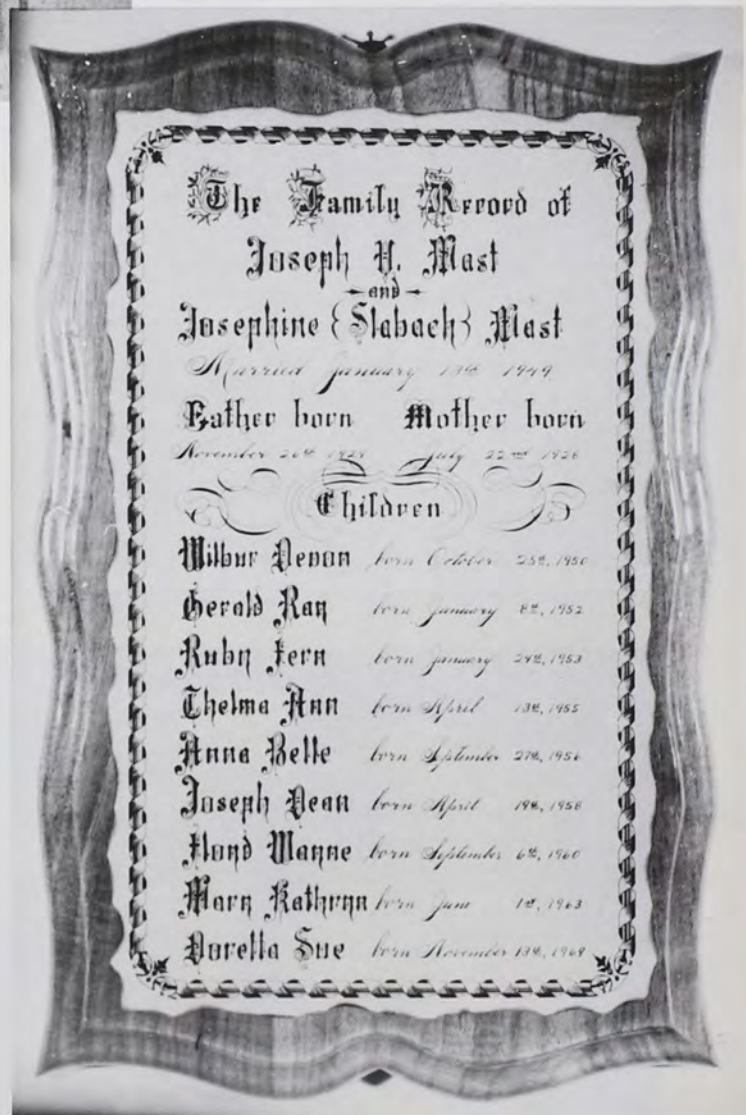 The Family Record of
Joseph Mast
and
Josephine {Slabach} Mast
Married January 1949
Father born Mother born
November 26th July 22nd
Children
Wilbur Devon born October 25th, 1950
Gerald Ray born January 8th, 1952
Ruby Fern born January 24th, 1953
Thelma Ann born April 13th, 1955
Anna Belle born September 27th, 1956
Joseph Dean born April 19th, 1958
Floyd Wayne born September 6th, 1960
Mary Kathryn born June 1st, 1963
Doretta Sue born November 13th,